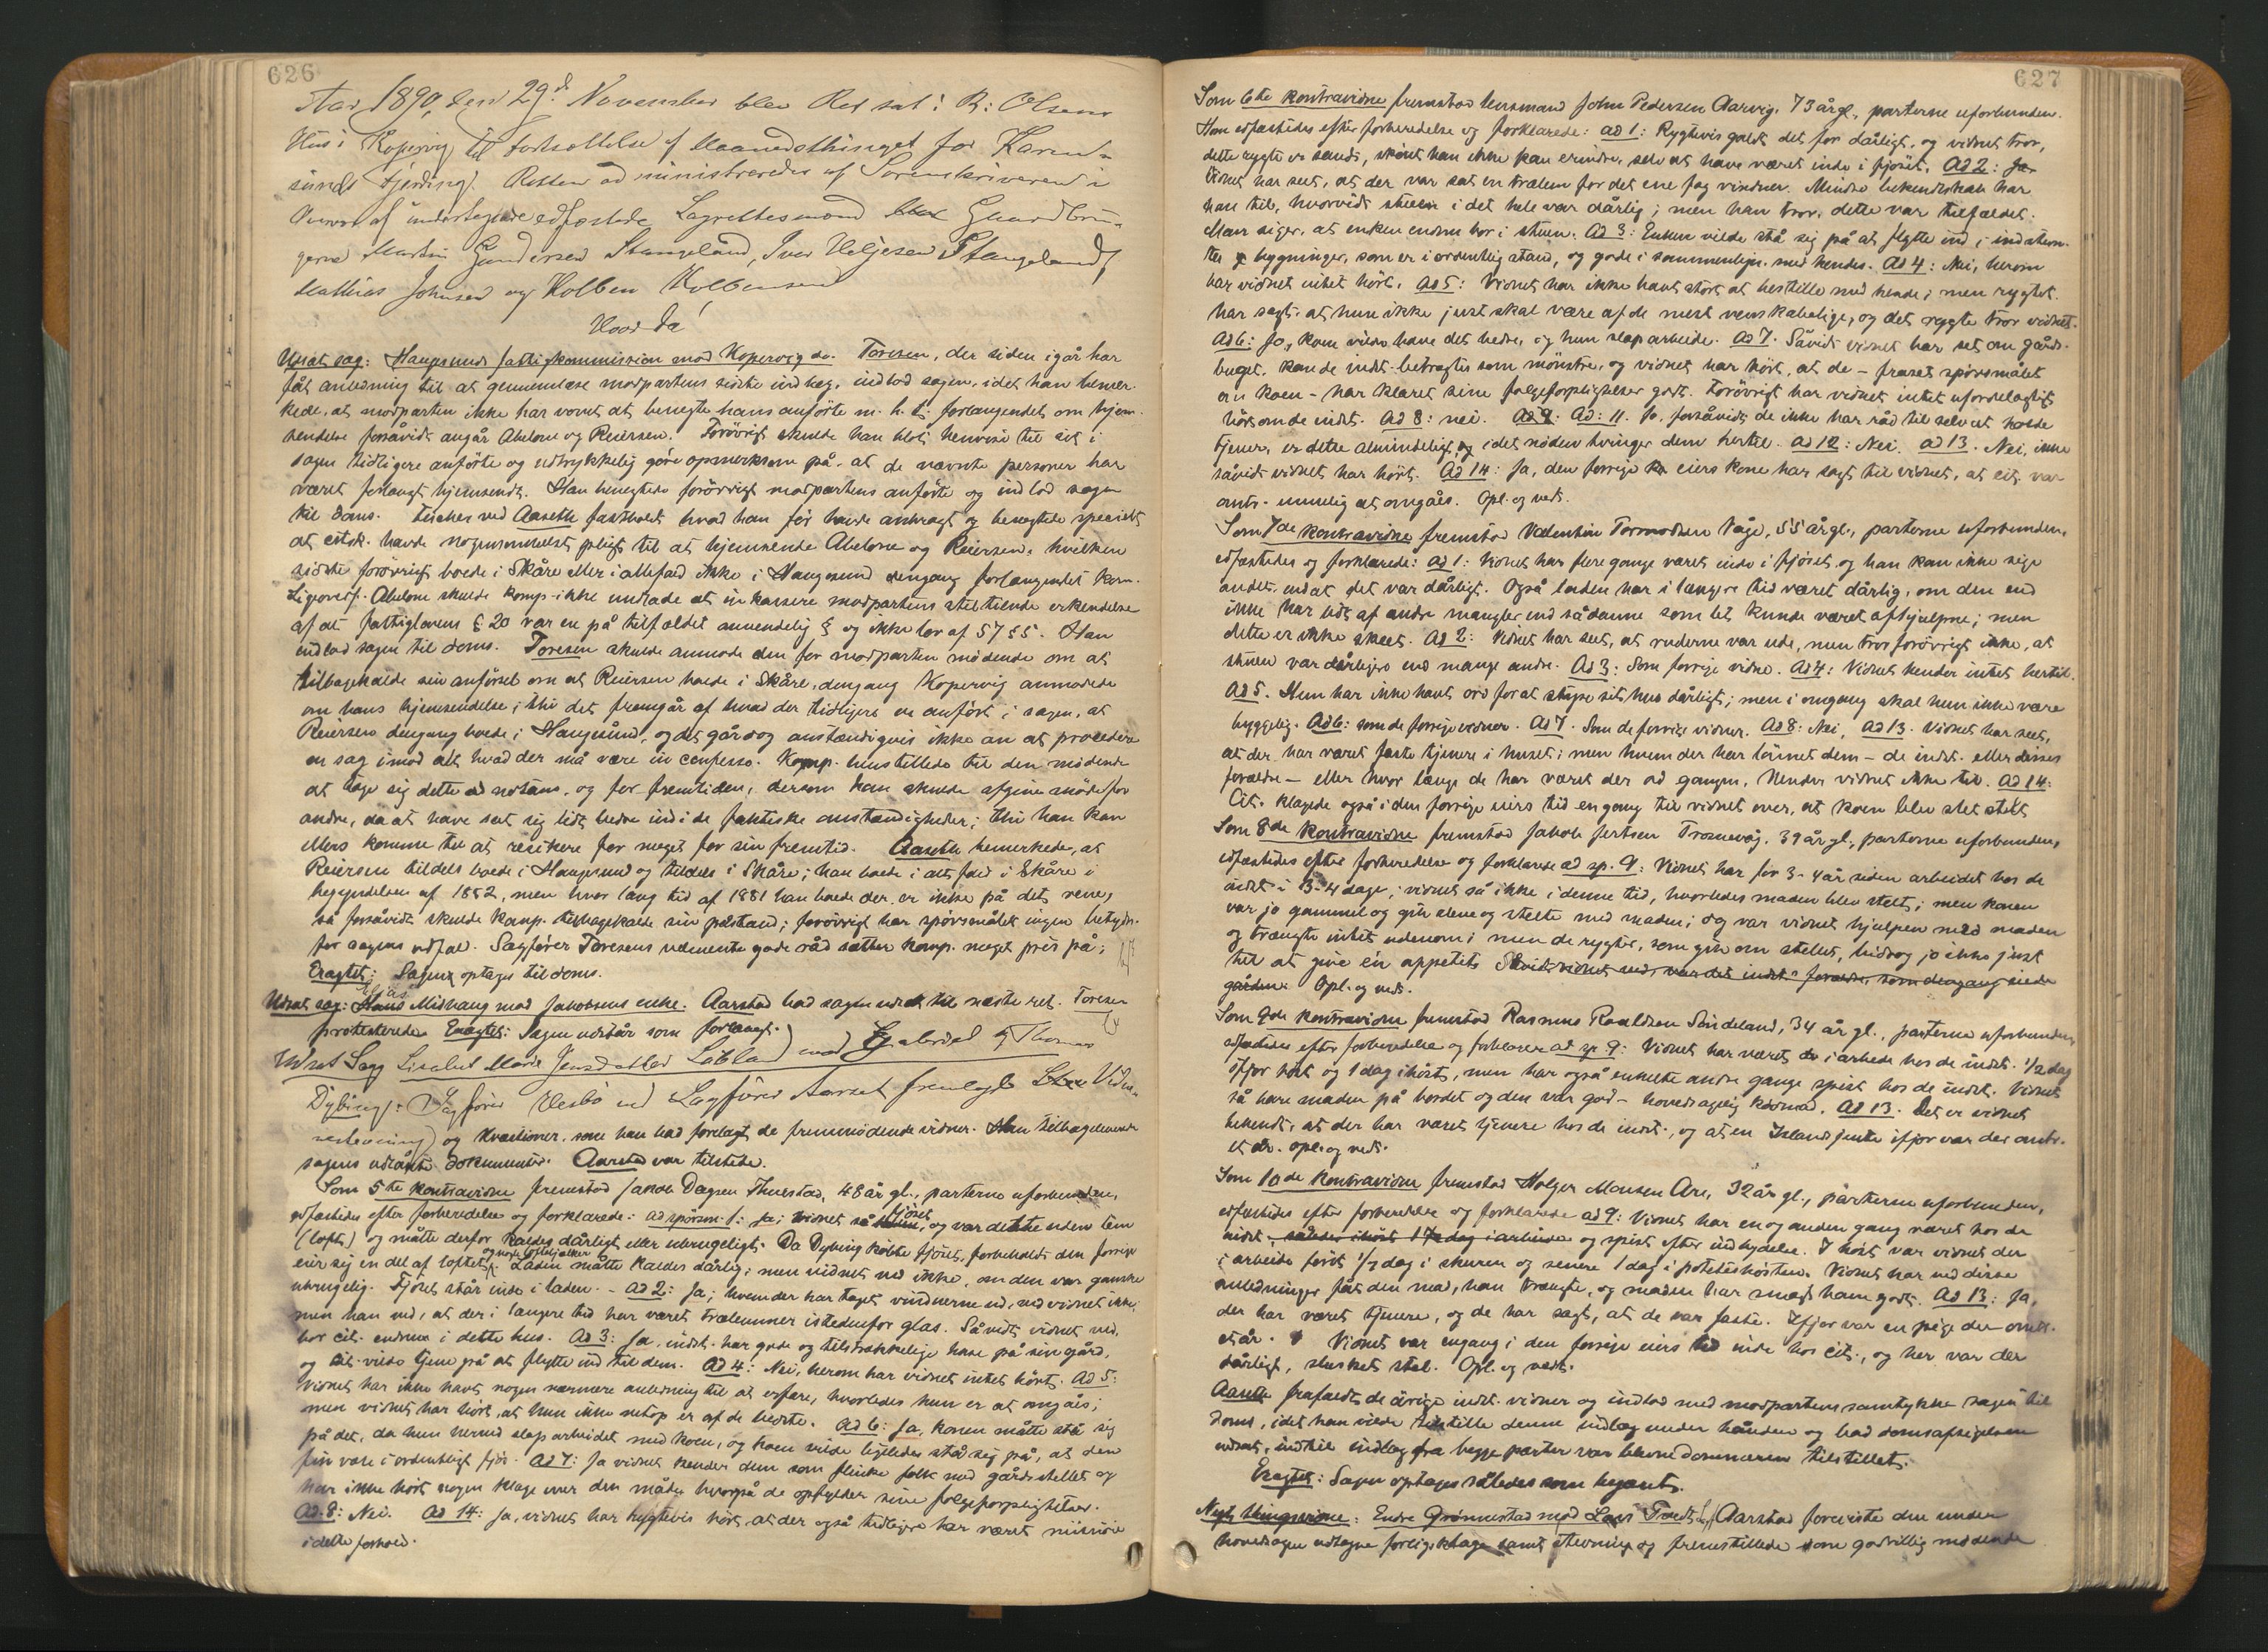 626
Aar 1890, den 29d. November blev Ret sat i R: Olsens
Hus i Kopervig til Forholdelse af Maanedsthinget for Karm-
sunds Fjerding. Retten administreredes af Sorenskriveren i
Overvær af undertegnede edfæstede Lagrettesmænd Gaardbru-
gerne Martin Gundersen Stangeland, Iver Heljesen Stangeland,
Mathias Johnsen og Kolben Kolbensen
Hvor da!
Udsat sag: Haugesunds fattigkommission mod Kopervig do. Toresen, der siden igår har
fåt anledning til at gennemlæse modpartens sidste indlæg, indlod sagen, idet han bemær-
kede, at modparten ikke har vovet at benegte hans anførte m. h. t. forlangendet om hjem-
sendelse forsåvidt angår Abelone og Reiersen. Forøvrigt skulde han blot henvise til sit i
sagen tidligere anførte og udtrykkelig gøre opmerksom på, at de nævnte personer har
været forlangt hjemsendt. Han benegtede forøvrigt modpartens anførte og indlod sagen
til doms. Fischer ved Aaseth fastholdt hvad han før havde anbragt og benegtede specielt
at citsk. havde nogensomhelst pligt til at hjemsende Abelone og Reiersen, hvilken
sidste forøvrigt boede i Skåre eller i altfald ikke i Haugesund dengang forlangendet kom.
Ligeoverf. Abelone skulde komp. ikke undlade at inkassere modpartens stiltiende erkendelse
af at fattiglovens § 20 var en på tilfældet anvendelig § og ikke lov af 57 § 5. Han
indlod sagen til doms. Toresen skulde anmode den for modparten mødende om at
tilbagekalde sin anførsel om at Reiersen boede i Skåre, dengang Kopervig anmodede
om hans hjemsendelse; thi det fremgår af hvad der tidligere er anført i sagen, at
Reiersen dengang boede i Haugesund, og det går dog anstændigvis ikke an at procedere
en sag imod alt hvad der må være in confesso. Komp. henstillede til den mødende
at tage sig dette ad notam, og for fremtiden, dersom han skulde afgive møde for
andre, da at have sat sig lidt bedre ind i de faktiske omstændigheder; thi han kan
ellers komme til at resikere for meget for sin fremtid. Aaseth bemerkede, at
Reiersen tildels boede i Haugesund og tildels i Skåre; han boede i altfald i Skåre i
begyndelsen af 1882, men hvor lang tid af 1881 han boede der, er ikke på det rene,
så forsåvidt skulde komp. tilbagekalde sin påstand; forøvrigt har spørsmålet ingen betydn.
for sagens udfald. Sagfører Toresens velmente gode råd sætter komp. meget pris på;
Eragtet: Sagen optages til doms.
Udsat sag: Hans Midhaug mod Jakobsens enke. Aarstad bad sagen udsat til næste ret. Toresen
protesterede. Eragtet: Sagen udstår som forlangt.
Udsat Sag Lisabet Marie Jensdatter mod
Dybing: Sagfører Vesbø ved Sagfører Aarset fremlagde
og kvæstioner, som han bad forelagt de fremmødende vidner. Han tilbageleverede
sagens udlånte dokumenter. Aarstad var tilstede.
Som 5te kontravidne fremstod Jakob Dagsen Thuestad, 48 år gl., parterne uforbunden,
edfæstedes efter forberedelse og forklarede: ad spørsm. 1: Ja; vidnet så fjöset, og var dette uden lem
(loft) og måtte derfor kaldes dårligt eller ubrugeligt. Da Dybing købte fjöset, forbeholdt den forrige
eier sig en del af loftet og nogle loftbjælker. Laden måtte kaldes dårlig; men vidnet ved ikke, om den var ganske
ubrugelig. Fjöset står inde i laden. - ad 2: Ja; hvem der har taget vinduerne ud, ved vidnet ikke,
men han ved, at der i længere tid har været trælemmer istedenfor glas. Såvidt vidnet ved,
bor cit. endnu i dette hus. Ad 3: Ja, indst. har gode og tilstrækkelige huse på sin gård,
og cit. vilde tjene på at flytte ind til dem. Ad 4: Nei, herom har vidnet intet hørt. Ad 5:
Vidnet har ikke havt nogen nærmere anledning til at erfare, hvorledes hun er at omgåes;
men vidnet har hört, at hun ikke netop er af de bedste. Ad 6: Ja, konen måtte stå sig
på det, da hun herved slap arbeidet med koen, og koen vilde ligeledes stå sig på, at den
fik være i ordentligt fjös. Ad 7: Ja vidnet kender dem som flinke folk med gårdsstellet og
har ikke hört nogen klage over den måde hvorpå de opfylder sine folgeforpligtelser.
Ad 8: Nei. Ad 14: Ja, vidnet har rygtevis hört, at der også tidligere har været misnöie
i dette forhold.
627
Som 6te kontravidne fremstod lensmand John Pedersen Aarvig, 73 år gl., parterne uforbunden.
Han edfæstedes efter forberedelse og forklarede: ad 1: Rygtevis galdt det for dårligt, og vidnet tror,
dette rygte er sandt, skönt han ikke kan erindre, selv at have været inde i fjöset. Ad 2: Ja
Vidnet har seet, at der var sat en trælem for det ene fag vinduer. Mindre bekendtskab har
han til, hvorvidt stuen i det hele var dårlig; men han tror, dette var tilfældet.
Man siger, at enken endnu bor i stuen. Ad 3: Enken vilde stå sig på at flytte ind i indstevn-
tes bygninger, som er i ordentlig stand, og gode i sammenlign. med hendes. Ad 4: Nei, herom
har vidnet intet hört. Ad 5: Vidnet har ikke havt stort at bestille med hende; men rygtet
har sagt, at hun ikke just skal være af de mest venskabelige, og det rygte tror vidnet.
Ad 6: Ja, koen vilde have det bedre, og hun slap arbeide. Ad 7. Såvidt vidnet har set om gårds-
bruget, kunde indst. betragtes som mönstre, og vidnet har hört, at de - fraset spörsmålet
om koen - har klaret sine folgeforpligtelser godt. Forövrigt har vidnet intet ufordelagtigt
hört om de indst. Ad 8: nei. Ad: 11. Ja, forsåvidt de ikke har råd til selv at holde
tjener, er dette almindeligt, idet nöden tvinger dem hertil. Ad 12: Nei. Ad 13. Nei, ikke
såvidt vidnet har hört. Ad 14: Ja, den forrige eiers kone har sagt til vidnet, at cit. var
omtr. umulig at omgåes. Opl. og vedt.
Som 7de kontravidne fremstod Valentin Tormodsen Våge, 55 år gl., parterne uforbunden,
edfæstedes og forklarede: ad 1: Vidnet har flere gange været inde i fjöset, og han kan ikke sige
andet, end at det var dårligt. Også laden har i længere tid været dårlig, om den end
ikke har lidt af andre mangler end sådanne som let kunde været afhjulpne; men
dette er ikke skeet. Ad 2: Vidnet har seet, at ruderne var ude, men tror forövrigt ikke, at
stuen var dårligere end mange andre. Ad 3: Som forrige vidne. Ad 4: Vidnet kender intet hertil.
Ad 5. Hun har ikke havt ord for at styre sit hus dårligt; men i omgang skal hun ikke være
hyggelig. Ad 6: som de forrige vidner. Ad 7. Som de forrige vidner. Ad 8: Nei, Ad 13. Vidnet har seet,
at der har været faste tjenere i huset; men hvem der har lönnet dem - de indst. eller disses
forældre - eller hvor længe de har været der ad gangen, kender vidnet ikke til. Ad 14:
Cit. klagede også i den forrige eiers tid engang til vidnet over, at koen blev slet stelt
Som 8de kontravidne fremstod Jakob Jertsen Trosnevåg, 39 år gl., parterne uforbunden,
edfæstedes efter forberedelse og forklarede ad sp. 9: Vidnet har for 3-4 år siden arbeidet hos de
indst. i 3-4 dage; vidnet så ikke i denne tid, hvorledes maden blev stelt; men konen
var jo gammel og gik alene og stelte med maden; dog var vidnet hjulpen med maden
og trængte intet udenom; men de rygter, som gik om stellet, bidrog jo ikke just
til at give en appetit. Såvidt vidnet ved, var det indst.s forældre, som dengang eiede
gården. Opl. og vedt.
Som 9de kontravidne fremstod Rasmus Roaldsen Sindeland, 34 år gl., parterne uforbunden,
edfæstedes efter forberedelse og forklarede ad sp. 9: Vidnet har været i arbeide hos de indst. 1/2 dag
ifjor höst og 1 dag ihöst, men har også enkelte andre gange spist hos de indst. Vidnet
så bare maden på bordet og den var god - hovedsagelig ködmad. Ad 13. Det er vidnet
bekendt, at der har været tjenere hos de indst., og at en Islandsjente ifjor var der omtr.
et år. Opl. og vedt.
Som 10de kontravidne fremstod Holger Monsen Are, 32 år gl., parterne uforbunden,
edfæstedes efter forberedelse og forklarede ad 9: Vidnet har en og anden gang været hos de
indst., således ihöst 1 1/2 dag i arbeide og spist efter indbydelse. I höst var vidnet der
i arbeide först 1/2 dag i skuren og senere 1 dag i potetshösten. Vidnet har ved disse
anledninger fåt den mad, han trængte, og maden har smagt ham godt. Ad 13: Ja,
der har været tjenere, og de har sagt, at de var faste. Ifjor var en pige der omtr.
et år. Vidnet var engang i den forrige eiers tid inde hos cit., og her var der
dårligt, slusket stel. Opl. og vedt.
Aaseth frafaldt de övrige indst. vidner og indlod med modpartens samtykke sagen til
doms, idet han vilde tilstille denne indlæg under hånden og bad domsafsigelsen
udsat, indtil indlæg fra begge parter var blevne dommeren tilstillet.
Eragtet: Sagen optages således som begært.
Nyt thingsvidne: Endre Grönnestad mod Lars Tvedt. Aarstad foreviste den under
hovedsagen udtagne forligsklage samt stevning og fremstillede som godvillig mödende